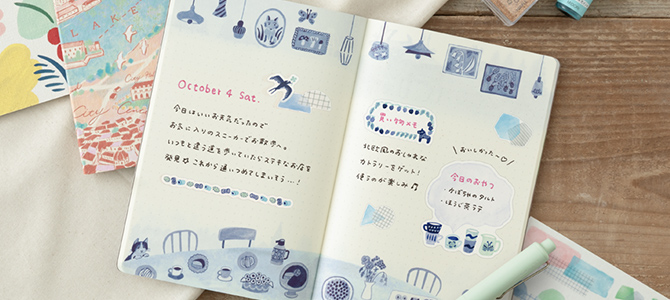 LAKE
City Center
October 4 Sat.
今日はいいお天気だったので
お気に入りのスニーカーでお散歩へ。
いつもと違う道を歩いていたらステキなお店を
発見! これから通いつめてしまいそう…!
買い物メモ
北欧風のおしゃれな
カトラリーをゲット!
使うのが楽しみ♬
\おいしかった〜♡/
今日のおやつ
・かぼちゃのタルト
・ほうじ茶ラテ